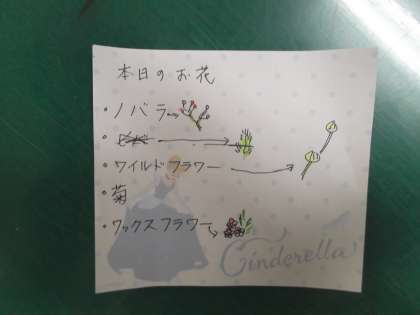 本日のお花
・ノバラ
・ワイルドフラワー
・菊
・ワックスフラワー
Cinderella